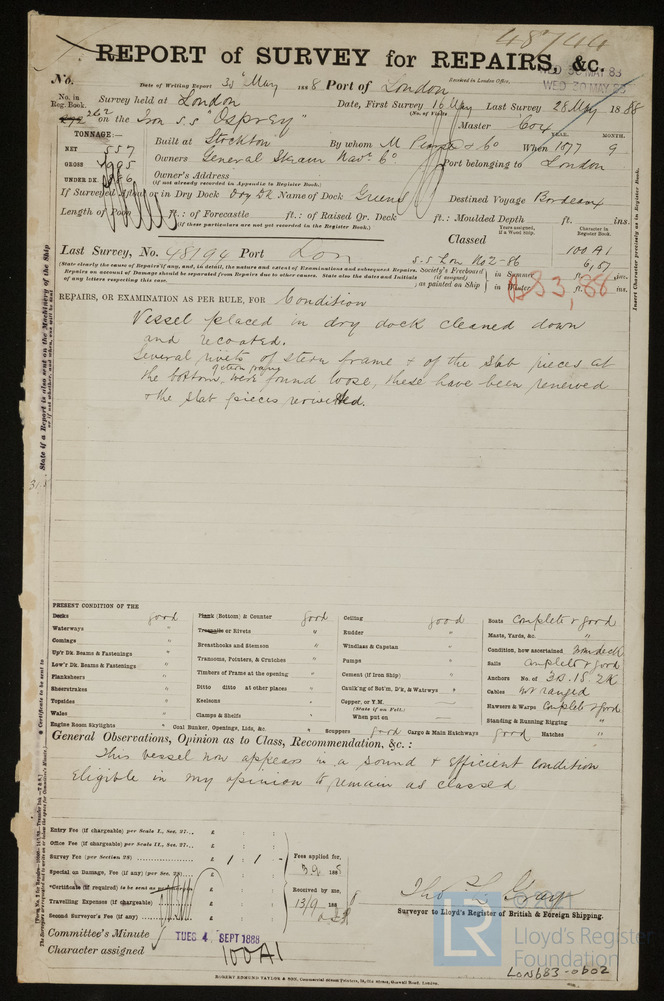 48744
REPORT of SURVEY for REPAIRS, &c.
Received in London Office,
WED 30 MAY 88
WED 30 MAY 88
No.
Date of Writing Report May 1888 Port of London
No. in Reg. Book.
Survey held at London Date, First Survey 16 May Last Survey 28 May 1888
(No. of Visits
262 on the Iron S.S "Osprey" Master Cox
TONNAGE:—
YEAR. MONTH.
NET 557 Built at Stockton By whom M Pearse & Co When 1877 9
GROSS Owners General Steam Nav. Co Port belonging to London
UNDER DK. Owner's Address
(if not already recorded in Appendix to Register Book.)
If Surveyed Afloat or in Dry Dock Dry Dk Name of Dock Greens Destined Voyage Bordeaux
Length of Poop ft.: of Forecastle ft.: of Raised Qr. Deck ft.: Moulded Depth ft. ins.
(if these particulars are not yet recorded in the Register Book.)
Years assigned, if a Wood Ship.
Character in Register Book.
Classed
Last Survey, No. 48194 Port Lon
100 A1
S.S Lon No 2-86
6,87
(State clearly the cause of Repairs if any, and, in detail, the nature and extent of Examinations and subsequent Repairs.
Repairs on account of Damage should be separated from Repairs due to other causes. State also the dates and initials of any letters respecting this case.
Society's Freeboard (if assigned) as painted on Ship
in Summer ft. ins.
in Winter ft. ins.
3,88
REPAIRS, OR EXAMINATION AS PER RULE, FOR Condition
Vessel placed in dry dock cleaned down
and recoated.
Several rivets of stern frame & of the slab pieces at
the bottom, were found loose, these have been renewed
& the slab pieces reriveted.
PRESENT CONDITION OF THE
Decks good
Waterways "
Comings "
Up'r Dk. Beams & Fastenings "
Low'r Dk. Beams & Fastenings "
Planksheers "
Sheerstrakes "
Topsides "
Wales "
Engine Room Skylights "
Plank (Bottom) & Counter good
Treenails or Rivets "
Breasthooks and Stemson "
Transoms, Pointers, & Crutches "
Timbers of Frame at the opening "
Ditto ditto at other places "
Keelsons "
Clamps & Shelfs "
Coal Bunker, Openings, Lids, &c. "
Ceiling good
Rudder "
Windlass & Capstan "
Pumps "
Cement (if Iron Ship) "
Caulk'ng of Bot'm, D'k, & Watrwys "
Copper, or Y.M.
(State if on Felt.)
When put on
Scuppers good Cargo & Main Hatchways good Hatches "
Boats complete & good
Masts, Yards, &c. "
Condition, how ascertained from deck
Sails complete & good
Anchors No. of 3B. 1S. 2K
Cables not ranged
Hawsers & Warps complete & good
Standing & Running Rigging "
General Observations, Opinion as to Class, Recommendation, &c.:
This vessel now appears in a sound & efficient condition
Eligible in my opinion to remain as classed
Entry Fee (if chargeable) per Scale I., Sec. 27... £ : :
Office Fee (if chargeable) per Scale II., Sec. 27... £ : :
Survey Fee (per Section 28) £ 1 : 1 : -
Special or Damage, Fee (if any) (per Sec. 28) £ : :
*Certificate (if required) to be sent as
Travelling Expenses (if chargeable) £ : :
Second Surveyor's Fee (if any) £ : :
Fees applied for,
188
Received by me,
13/9 188
Tho L Gray
Surveyor to Lloyd's Register of British & Foreign Shipping.
Committee's Minute TUES 4 SEPT 1888
Character assigned 100A1
ROBERT EDMUND TAYLOR & SON, Commercial Steam Printers, London.
Insert Character precisely as in Register Book.
LR
© 2021
Lloyd's Register
Foundation
LON683-0602